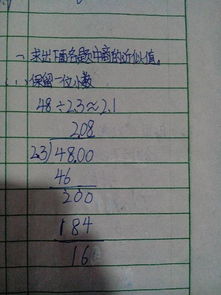 一、求出下面各题中商的近似值。
(1) 保留一位小数
48÷2.3≈2.1
2.08
2.3)48.00
46
200
184
16